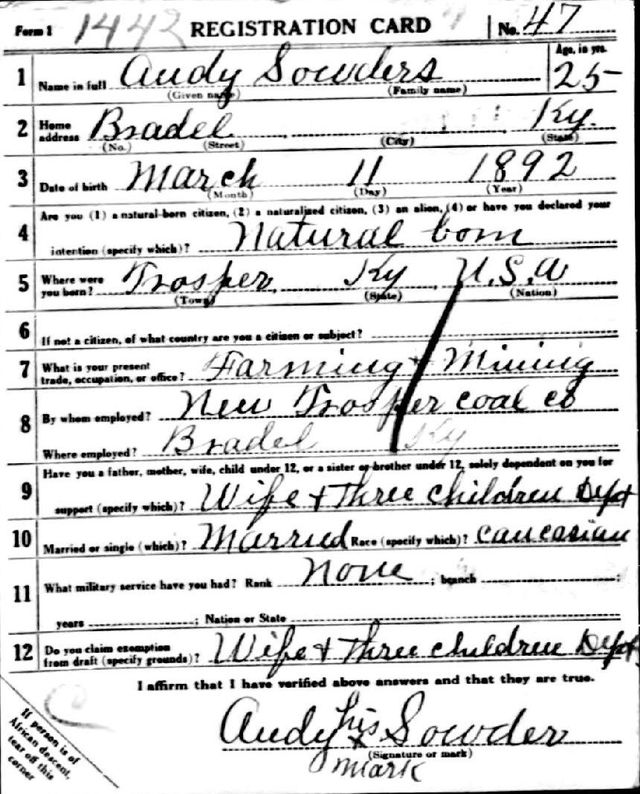 Form 1 1442 REGISTRATION CARD No. 47
1 Name in full Andy Sowders Age, in yrs. 25
(Given name) (Family name)
2 Home address Bradel Ky.
(No.) (Street) (City) (State)
3 Date of birth March 11 1892
(Month) (Day) (Year)
Are you (1) a natural-born citizen, (2) a naturalized citizen, (3) an alien, (4) or have you declared your
4 intention (specify which)? Natural born
5 Where were you born? Trosper, Ky U.S.A
(Town) (State) (Nation)
6 If not a citizen, of what country are you a citizen or subject?
7 What is your present trade, occupation, or office? Farming + Mining
8 By whom employed? New Trosper coal co
Where employed? Bradel Ky
Have you a father, mother, wife, child under 12, or a sister or brother under 12, solely dependent on you for
9 support (specify which)? Wife + Three children Dept
10 Married or single (which)? Married Race (specify which)? Caucasian
11 What military service have you had? Rank None ; branch
years ; Nation or State
12 Do you claim exemption from draft (specify grounds)? Wife + Three children Dept
I affirm that I have verified above answers and that they are true.
Andy his x mark Sowder
(Signature or mark)
If person is of
African descent,
tear off this
corner